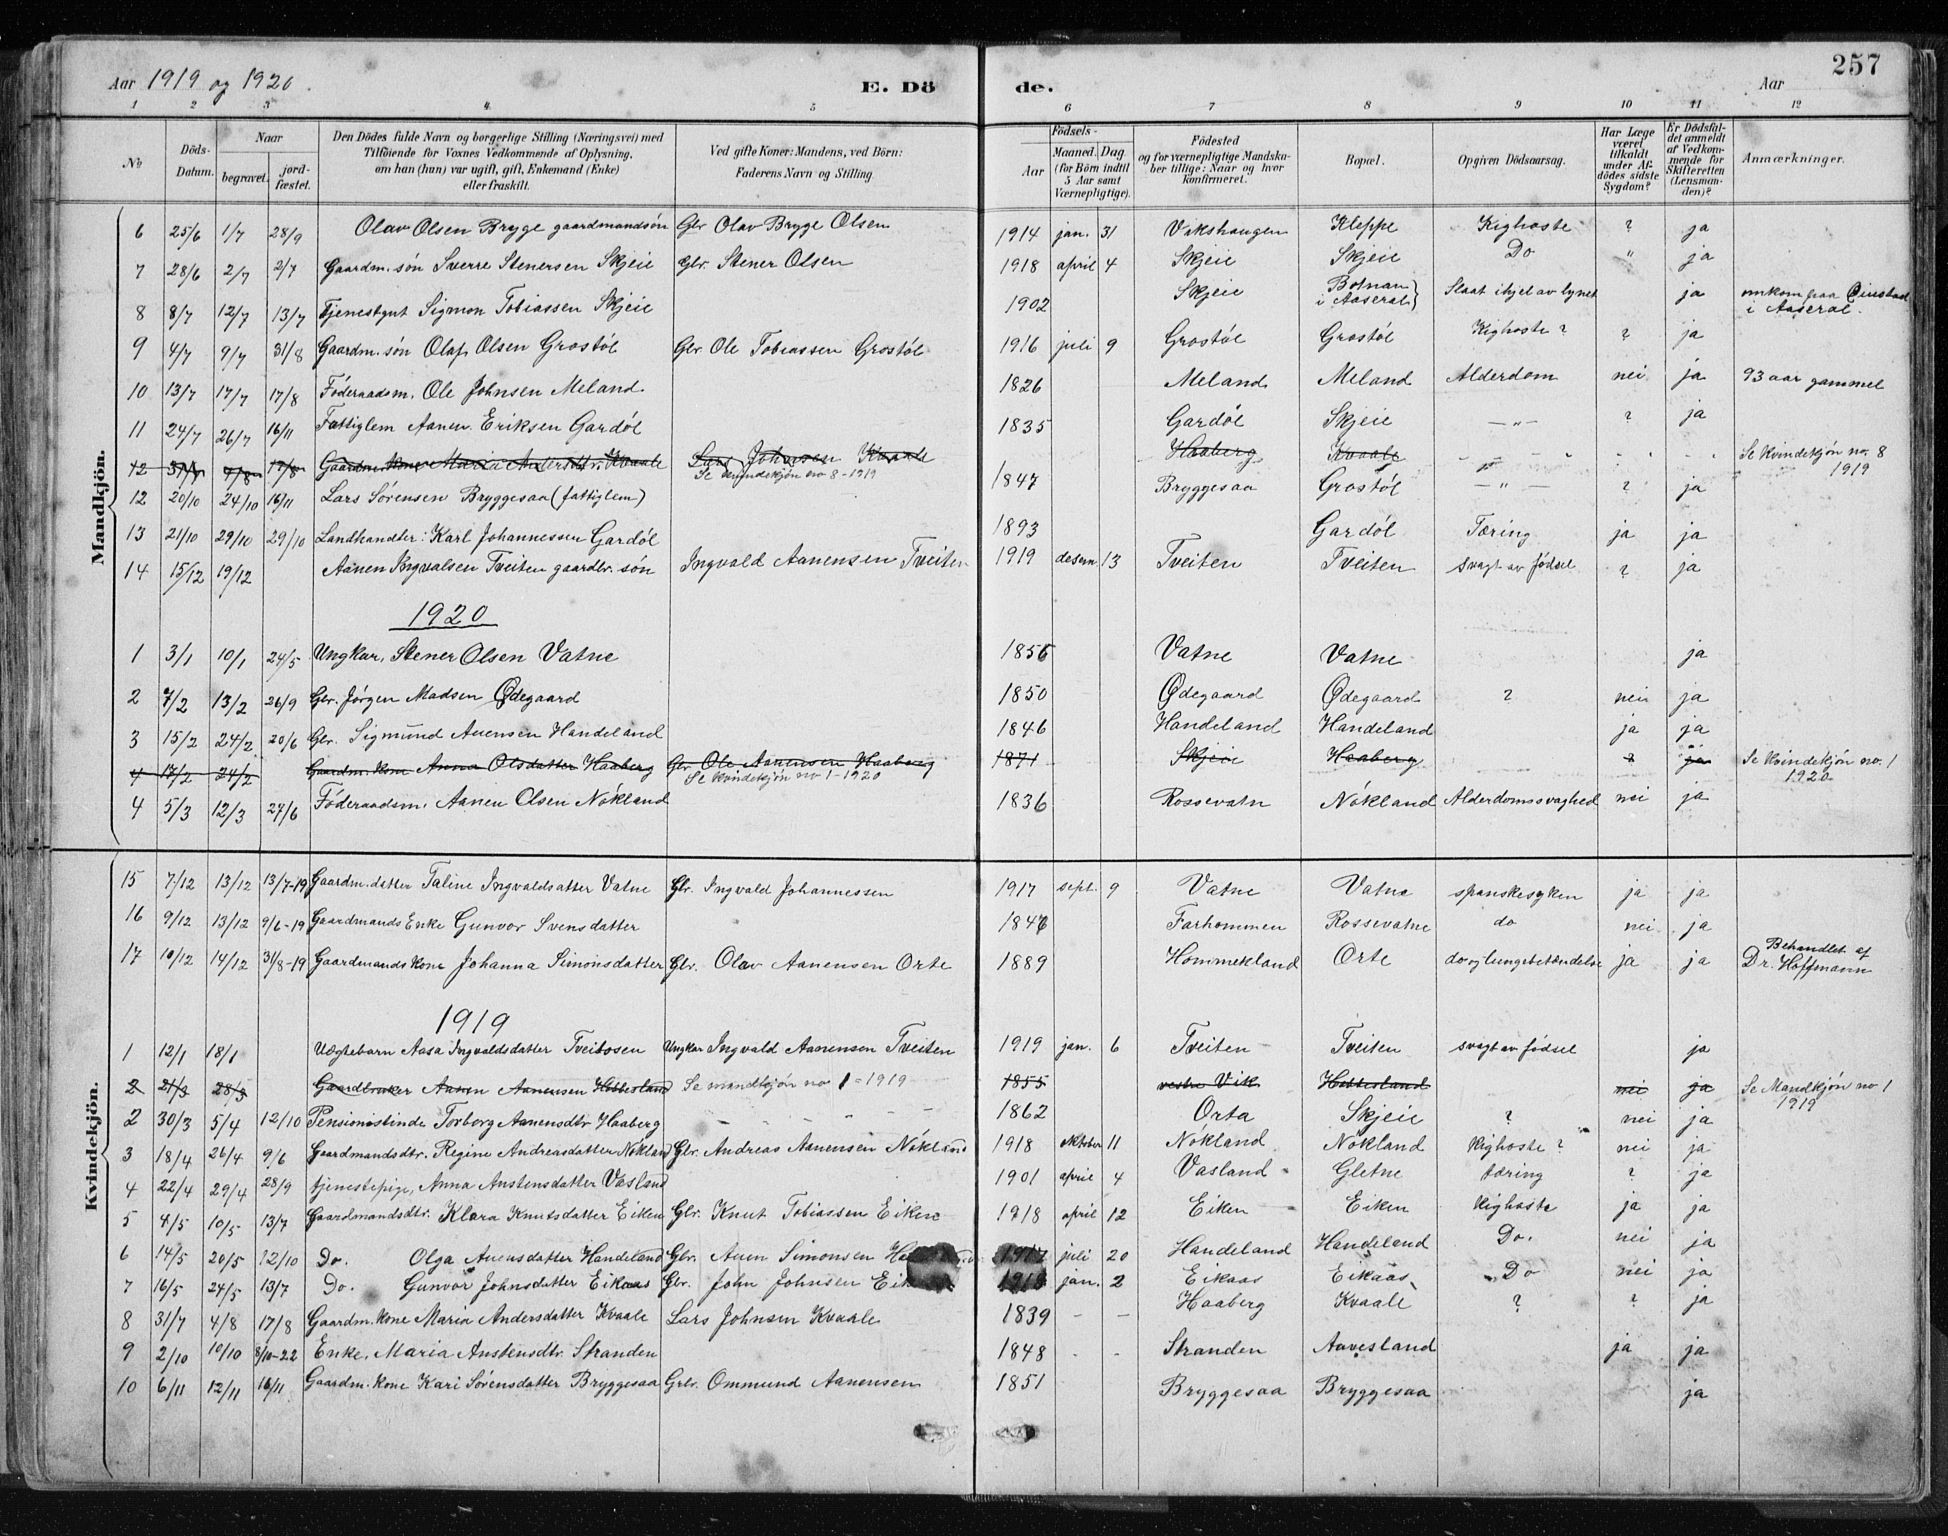 Aar 1919 og 1920. E. Döde. Aar 257
1 2 3 4 5 6 7 8 9 10 11 12
No | Döds-Datum. | Naar begravet. | jordfæstet. | Den Dödes fulde Navn og borgerlige Stilling (Næringsvei) med Tilföiende for Voxnes Vedkommende af Oplysning, om han (hun) var ugift, gift, Enkemand (Enke) eller fraskilt. | Ved gifte Koner: Mandens, ved Börn: Faderens Navn og Stilling. | Födsels- Aar | Maaned. Dag. (for Börn indtil 5 Aar samt Værnepligtige). | Födested og for værnepligtige Mandskaber tillige: Naar og hvor konfirmeret. | Bopæl. | Opgiven Dödsaarsag. | Har Læge været tilkaldt under Afdödes sidste Sygdom? | Er Dödsfaldet anmeldt af Vedkommende for Skifteretten (Lensmanden)? | Anmærkninger.
Mandkjön.
6 25/6 1/7 28/9 Olav Olsen Bryge gaardmandsön Gbr Olav Bryge Olsen 1914 jan. 31 Vikshaugen Kleppe Kighoste ? ja
7 28/6 2/7 2/7 Gaardm. sön Sverre Stenersen Skjeie Gbr. Stener Olsen 1918 april 4 Skjeie Skjeie Do " ja
8 8/7 12/7 13/7 Tjenestgut Sigmon Tobiassen Skjeie 1902 Skjeie Botnan i Aaseral Slaat ihjel av lynet ja omkom paa i Aaseral.
9 4/7 9/7 31/8 Gaardm. sön Olaf Olsen Grostöl Gbr. Ole Tobiassen Grostöl 1916 juli 9 Grostöl Grostöl Kighoste ? ? ja
10 13/7 17/7 17/8 Föderaadsm. Ole Johnsen Meland 1826 Meland Meland Alderdom nei ja 93 aar gammel
11 24/7 26/7 16/11 Fattiglem Aanen Eriksen Gardöl 1835 Gardöl Skjeie — " — ? ja
12 31/7 4/8 17/8 Gaardm. kone Maria Andersdtr. Kvaale Lars Johnsen Kvaale Haaberg Kvaale Se Kvindekjön no. 8
Se Kvindekjön no 8 - 1919 1919
12 20/10 24/10 16/11 Lars Sörensen Bryggesaa (fattiglem) 1847 Bryggesaa Grostöl — " — ? ja
13 21/10 29/10 29/10 Landhandler: Karl Johannessen Gardöl 1893 Gardöl Tæring ja ja
14 15/12 19/12 Aanen Ingvalsen Tveiten gaardbr. sön Ingvald Aanensen Tveiten 1919 desem 13 Tveiten Tveiten svagt av födsel ? ja
1920
1 3/1 10/1 24/5 Ungkar, Stener Olsen Vatne 1856 Vatne Vatne ja
2 7/2 13/2 26/9 Gbr. Jörgen Madsen Ødegaard 1850 Ødegaard Ødegaard ? nei ja
3 15/2 24/2 20/6 Gbr. Sigmund Auensen Handeland 1846 Handeland Handeland ja ja
4 17/2 24/2 Gaardm. kone Anna Olsdatter Haaberg Gbr. Ole Aanensen Haaberg 1871 Skjeie Haaberg ? ja Se Kvindekjön no. 1
Se Kvindekjön no 1 - 1920 1920
4 5/3 12/3 27/6 Föderaadsm. Aanen Olsen Nökland 1836 Rossevatn Nökland Alderdomssvaghed nei ja
Kvindekjön.
15 7/12 13/12 13/7-19 Gaardm. datter Taline Ingvaldsatter Vatne Gbr. Ingvald Johannessen 1917 sept. 9 Vatne Vatne spanskesyken ja ja
16 9/12 13/12 9/6-19 Gaardmands Enke Gunvor Svensdatter 1846 Farhommen Rossevatne do nei ja
17 10/12 14/12 31/8-19 Gaardmands kone Johanna Simonsdatter Gbr. Olav Aanensen Orte 1889 Hommekland Orte do og lungebetændelse ja ja Behandlet af Dr. Hoffmann
1919
1 12/1 18/1 Uægtebarn Aasa Ingvaldsdatter Tveitosen Ungkar Ingvald Aanensen Tveiten 1919 jan. 6 Tveiten Tveiten svagt av födsel ja
2 21/3 28/3 Gaardbruker Aanen Aanensen Hebbesland Se mandkjön no 1 - 1919 1855 vestre Vik Hebbesland nei ja Se Mandkjön no 1
1919
2 30/3 5/4 12/10 Pensionistinde Torborg Aanensdtr Haaberg 1862 Orta Skjeie ? nei ja
3 18/4 26/4 9/6 Gaardmandsdtr. Regine Andreasdatter Nökland Gbr. Andreas Aanensen Nökland 1918 oktober 11 Nökland Nökland Kighoste ? nei ja
4 22/4 29/4 28/9 tjenestepige, Anna Anstensdatter Vasland 1901 april 4 Vasland Gletne tæring ? ja
5 4/5 10/5 13/7 Gaardmandsdtr. Klara Knutsdatter Eiken Gbr. Knut Tobiassen Eiken 1918 april 12 Eiken Eiken Kighoste ja ja
6 14/5 20/5 12/10 Do. Olga Auensdatter Handeland Gbr. Auen Simonsen 1917 juli 20 Handeland Handeland Do. nei ja
7 16/5 24/5 13/7 Do. Gunvor Johnsdatter Eikaas Gbr. John Johnsen jan. 2 Eikaas Eikaas Do nei ja
8 31/7 4/8 17/8 Gaardm. kone Maria Andersdatter Kvaale Lars Johnsen Kvaale 1839 - - Haaberg Kvaale ? ? ja
9 2/10 10/10 8/10-22 Enke, Maria Anstensdtr. Stranden 1848 - - Stranden Aavesland ja ja
10 6/11 12/11 16/11 Gaardm. kone Kari Sörensdatter Bryggesaa Grbr. Ommund Aanensen 1851 Bryggesaa Bryggesaa ja